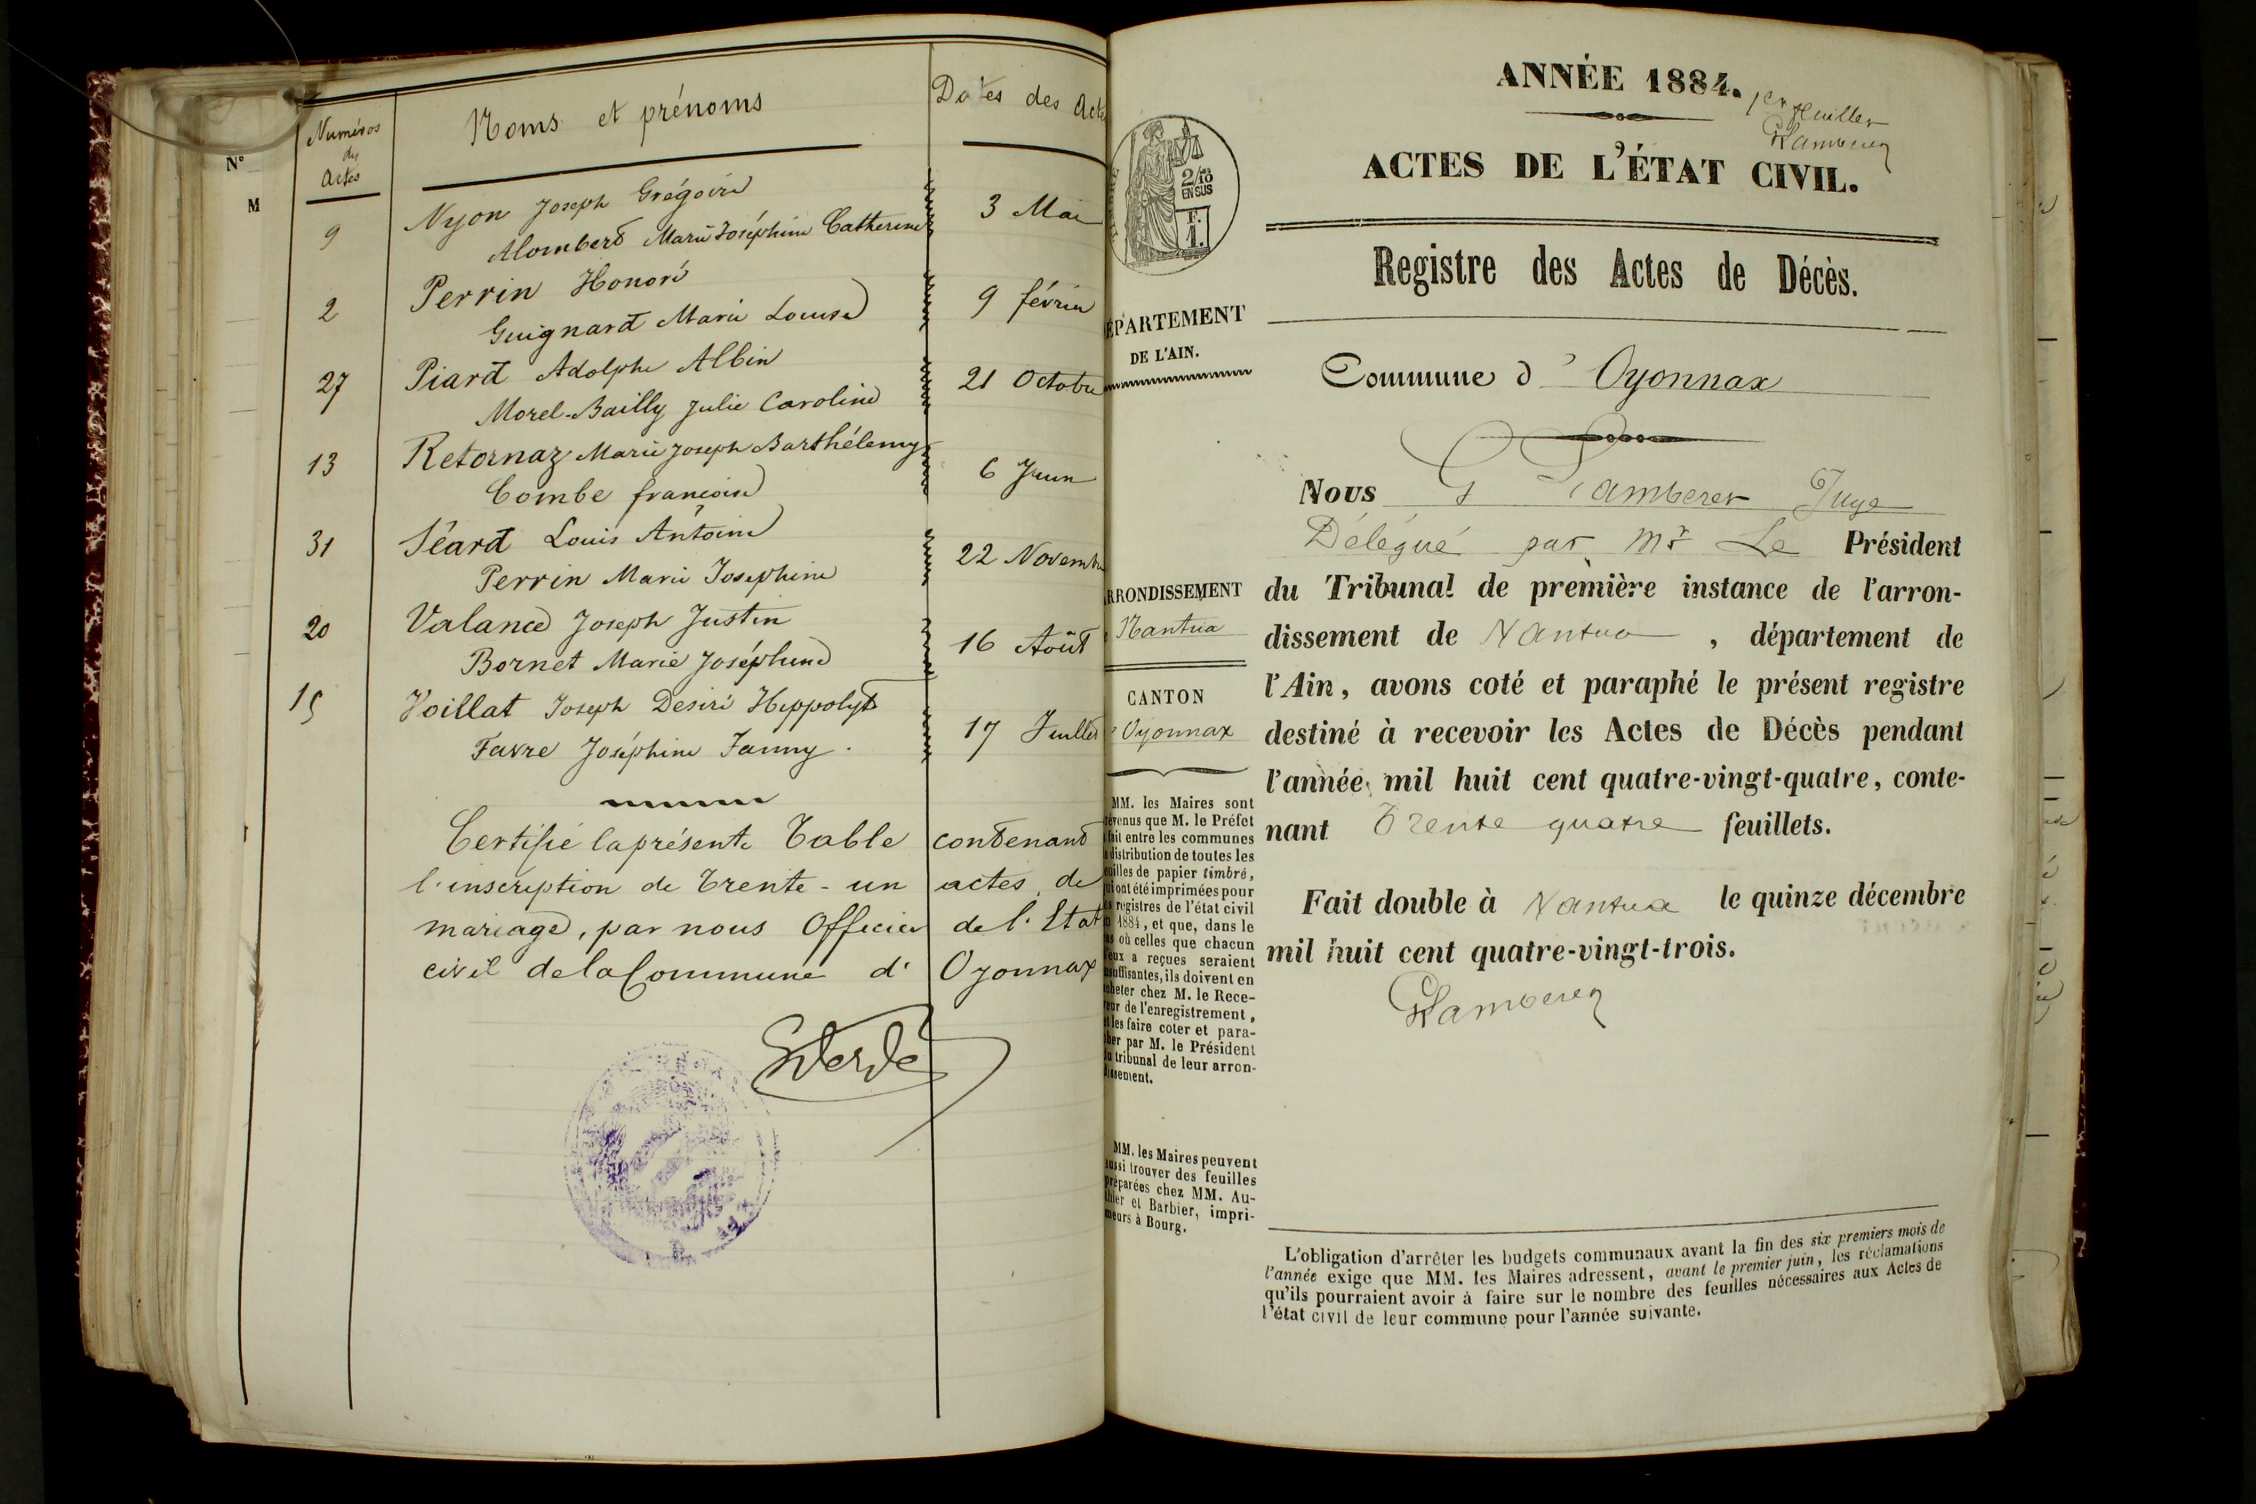 N°
M
Numéros
des
Actes
Noms et prénoms
Dates des Actes
9
Nyon Joseph Grégoire
Alombert Marie Joséphine Catherine
3 Mai
2
Perrin Honoré
Guignard Marie Louise
9 février
27
Piard Adolphe Albin
Morel-Bailly Julie Caroline
21 Octobre
13
Retornaz Marie Joseph Barthélemy
Combe françoise
6 Juin
31
Séard Louis Antoine
Perrin Marie Josephine
22 Novembre
20
Valance Joseph Justin
Bornet Marie Joséphine
16 Août
15
Voillat Joseph Desiré Hippolyte
Favre Joséphine Fanny.
17 Juillet
Certifié la présente Table contenant
l'inscription de trente-un actes de
mariage, par nous Officier de l'Etat
civil de la Commune d'Oyonnax
ANNÉE 1884.
1er feuillet
ACTES DE L'ÉTAT CIVIL.
2/10 es
EN SUS
F.
1.
Registre des Actes de Décès.
EPARTEMENT
DE L'AIN.
Commune d'Oyonnax
Nous G Lamberer Juge
Délégué par Mr Le Président
du Tribunal de première instance de l'arron-
dissement de Nantua, département de
l'Ain, avons coté et paraphé le présent registre
destiné à recevoir les Actes de Décès pendant
l'année mil huit cent quatre-vingt-quatre, conte-
nant Trente quatre feuillets.
Fait double à Nantua le quinze décembre
mil huit cent quatre-vingt-trois.
RRONDISSEMENT
Nantua
CANTON
d'Oyonnax
MM. les Maires sont
évenus que M. le Préfet
fait entre les communes
distribution de toutes les
uilles de papier timbré,
ui ont été imprimées pour
s registres de l'état civil
1884, et que, dans le
as où celles que chacun
eux a reçues seraient
suffisantes, ils doivent en
heter chez M. le Rece-
eur de l'enregistrement,
t les faire coter et para-
her par M. le Président
u tribunal de leur arron-
issement.
MM. les Maires peuvent
ussi trouver des feuilles
préparées chez MM. Au-
thier et Barbier, impri-
meurs à Bourg.
L'obligation d'arrêter les budgets communaux avant la fin des six premiers mois de
l'année exige que MM. les Maires adressent, avant le premier juin, les réclamations
qu'ils pourraient avoir à faire sur le nombre des feuilles nécessaires aux Actes de
l'état civil de leur commune pour l'année suivante.